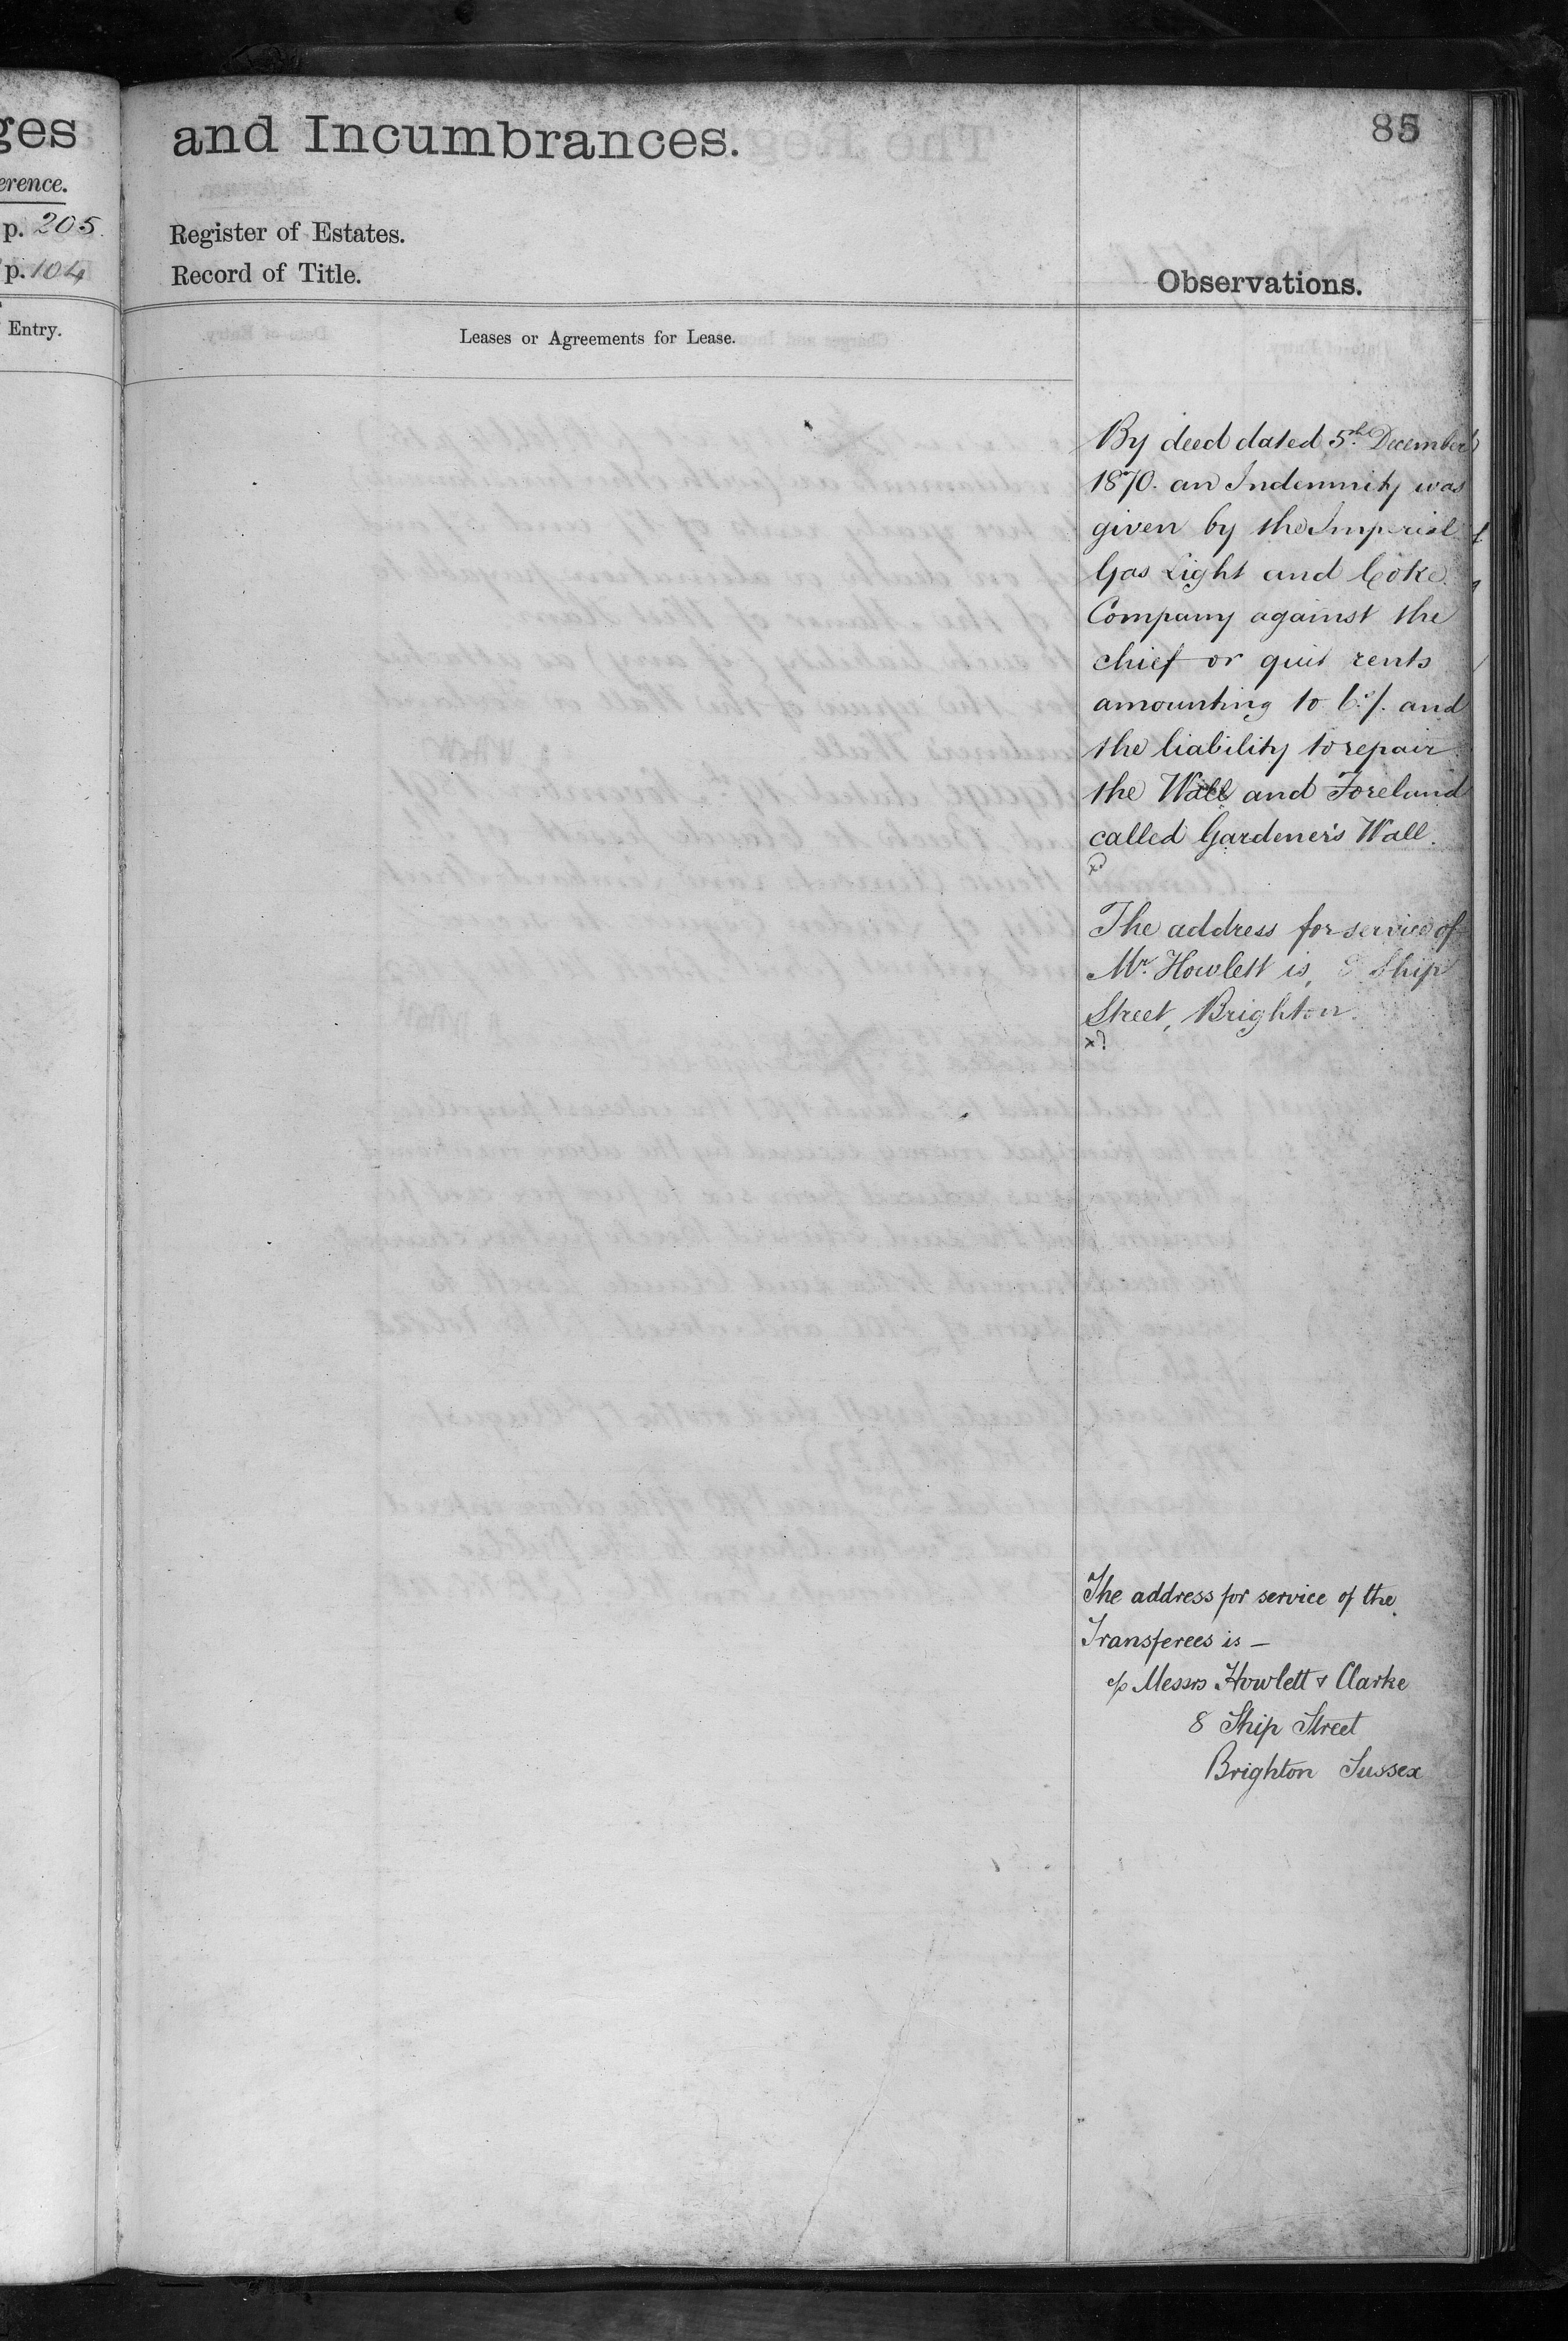 ges
erence.
p. 205.
p. 104
Entry.
and Incumbrances.
85
Register of Estates.
Record of Title.
Observations.
Leases or Agreements for Lease.
By deed dated 5th December
1870. an Indemnity was
given by the Imperial
Gas Light and Coke
Company against the
chief or quit rents
amounting to and
the liability to repair
the Wall and Foreland
called Gardener's Wall.
The address for service of
Mr. Howlett is, 8 Ship
Street, Brighton.
The address for service of the
Transferees is —
c/o Messrs Howlett & Clarke
8 Ship Street
Brighton Sussex